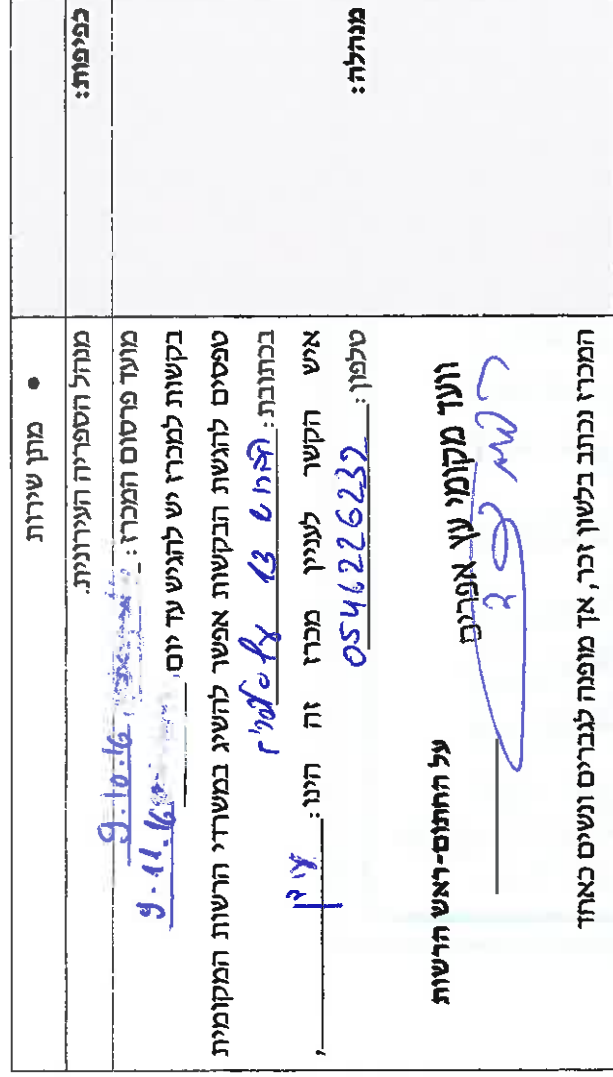 • מתן שירות
כפיפות:
מנהל הספריה העירונית.
מנהלה:
מועד פרסום המכרז: 9.10.16
בקשות למכרז יש להגיש עד יום 9.11.16
טפסים להגשת הבקשות אפשר להשיג במשרדי הרשות המקומית
בכתובת: הברוש 13
איש הקשר לעניין מכרז זה הינו:
טלפון: 0546226232
וועד מקומי עץ אפרים
על החתום-ראש הרשות
המכרז נכתב בלשון זכר, אך מופנה לגברים ונשים כאחד